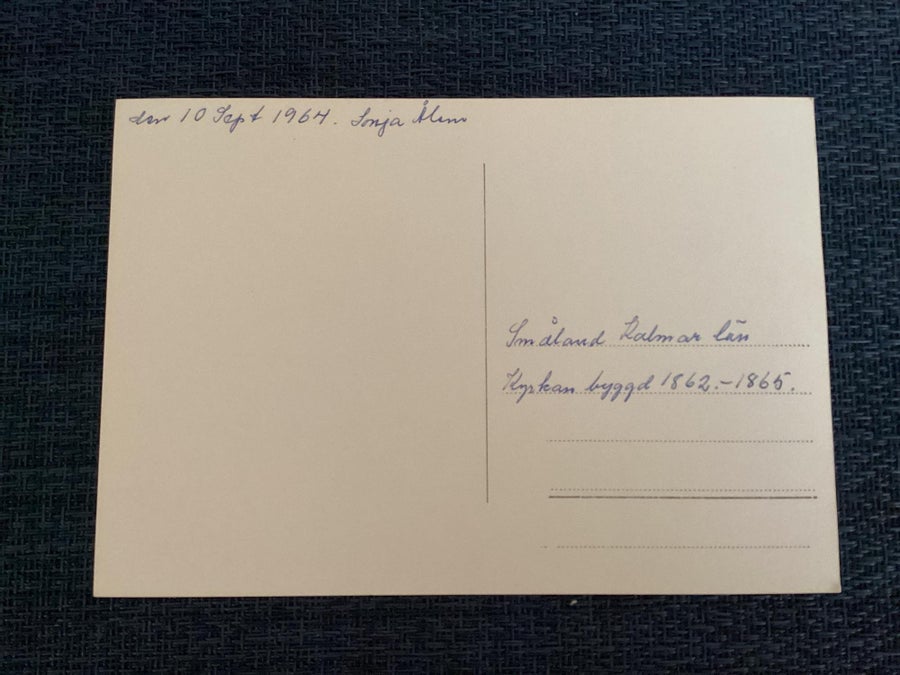 den 10 Sept 1964. Sonja Ålem
Småland Kalmar län
Kyrkan byggd 1862.-1865.